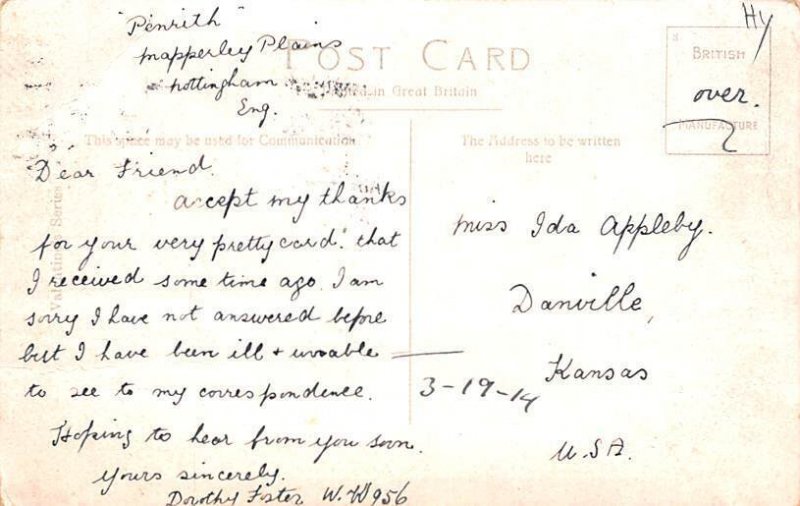 "Penrith"
Mapperley Plains
Nottingham
Eng.
POST CARD
Printed in Great Britain
This space may be used for Communication
The Address to be written
here
BRITISH
over.
MANUFACTURE
Hy
Valentines Series
Dear Friend.
accept my thanks
for your very pretty card. that
I received some time ago. I am
sorry I have not answered before
but I have been ill + unable
to see to my correspondence.
Hoping to hear from you soon.
Yours sincerely.
Dorothy Foster W.W 956
Miss Ida Appleby.
Danville,
Kansas
U.S.A.
3-19-14